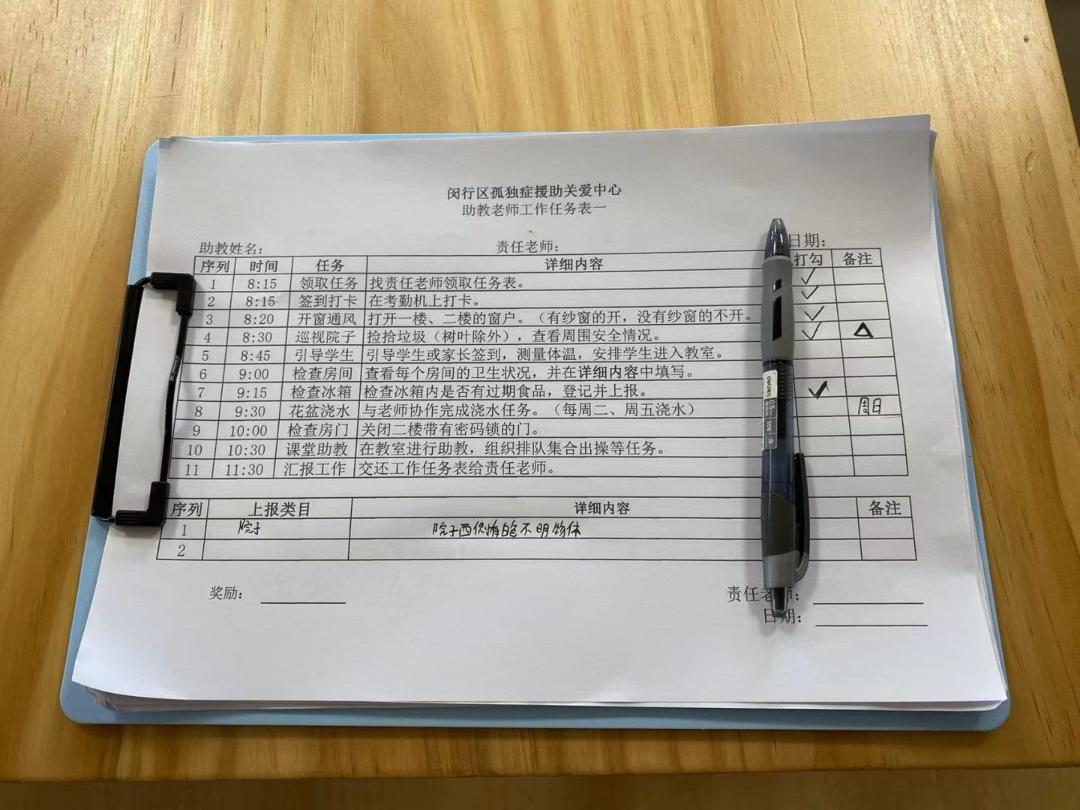 闵行区孤独症援助关爱中心
助教老师工作任务表一
助教姓名： 责任老师： 日期：
序列 时间 任务 详细内容 打勾 备注
1 8:15 领取任务 找责任老师领取任务表。 ✓
2 8:15 签到打卡 在考勤机上打卡。 ✓
3 8:20 开窗通风 打开一楼、二楼的窗户。（有纱窗的开，没有纱窗的不开。 ✓
4 8:30 巡视院子 捡拾垃圾（树叶除外），查看周围安全情况。 ✓ △
5 8:45 引导学生 引导学生或家长签到，测量体温，安排学生进入教室。
6 9:00 检查房间 查看每个房间的卫生状况，并在详细内容中填写。
7 9:15 检查冰箱 检查冰箱内是否有过期食品，登记并上报。 ✓
8 9:30 花盆浇水 与老师协作完成浇水任务。（每周二、周五浇水） 周日
9 10:00 检查房门 关闭二楼带有密码锁的门。
10 10:30 课堂助教 在教室进行助教，组织排队集合出操等任务。
11 11:30 汇报工作 交还工作任务表给责任老师。
序列 上报类目 详细内容 备注
1 院子 院子西侧有 不明物体
2
奖励： 责任老师：
日期：